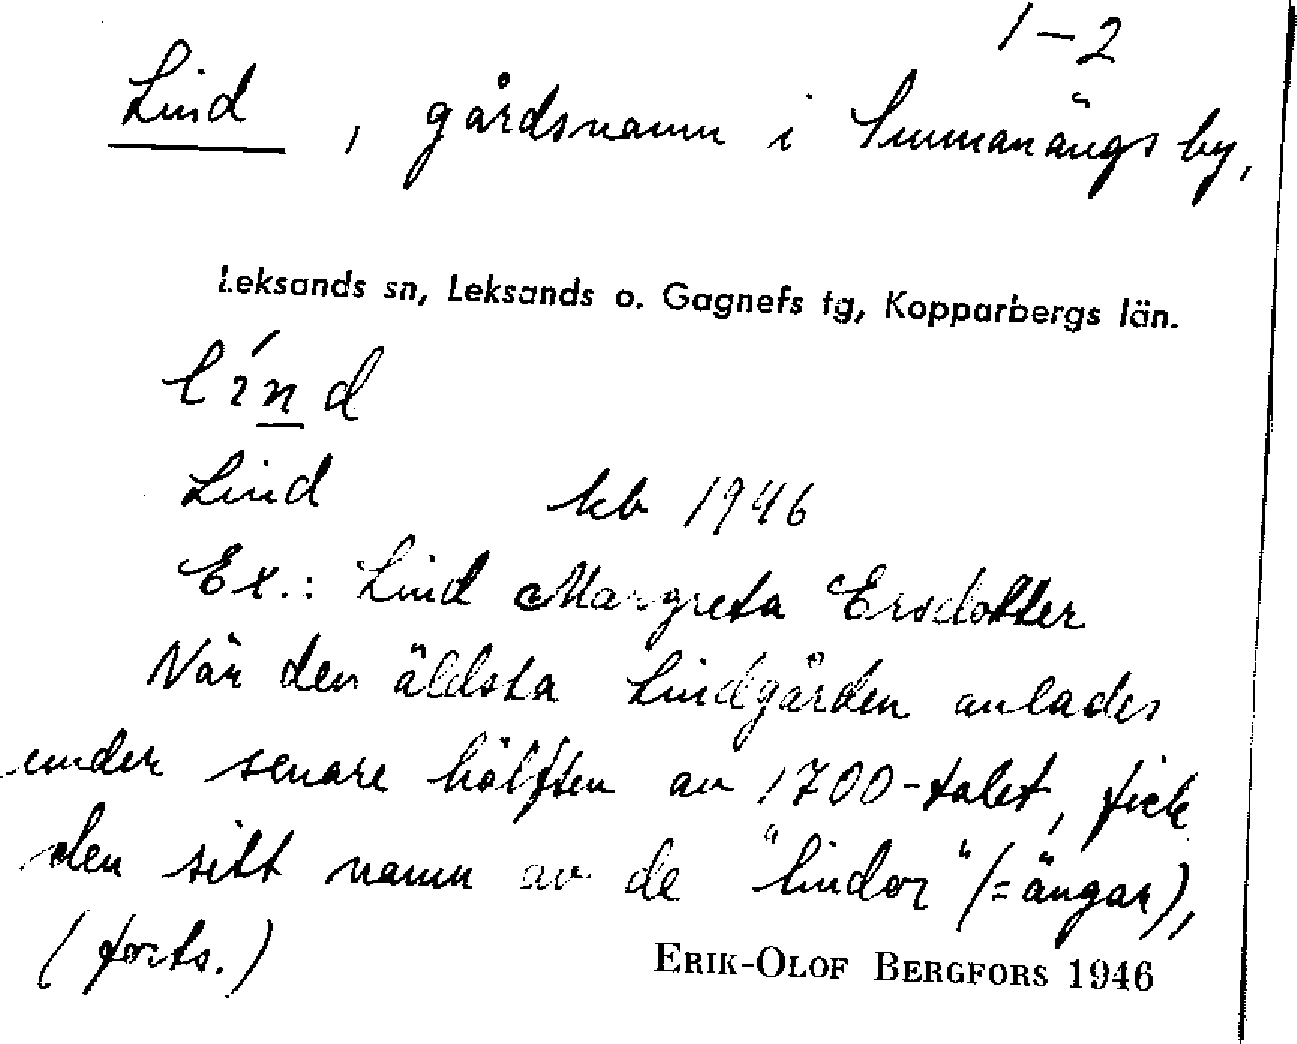 1-2
Lind, gårdsnamn i Sunnanängs by,
Leksands sn, Leksands o. Gagnefs tg, Kopparbergs län.
lind
Lind kb 1946
Ex.: Lind Margreta Ersdotter
När den äldsta Lindgården anlades
under senare hälften av 1700-talet, fick
den sitt namn av de "lindor" (=ängar),
(forts.)
ERIK-OLOF BERGFORS 1946